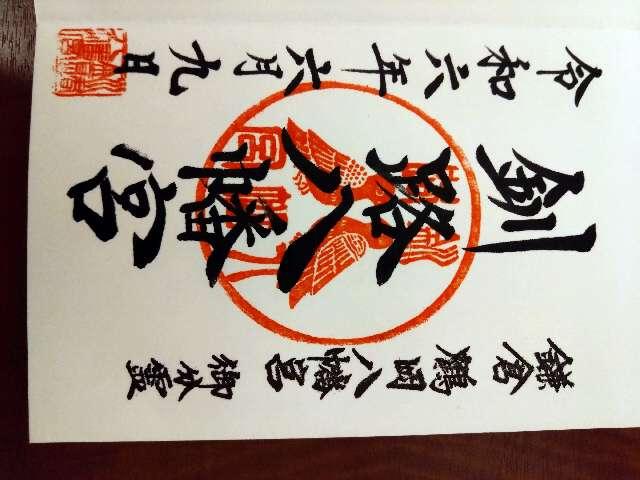 鎌倉鶴岡八幡宮御分靈
釧路八幡宮
令和六年六月九日